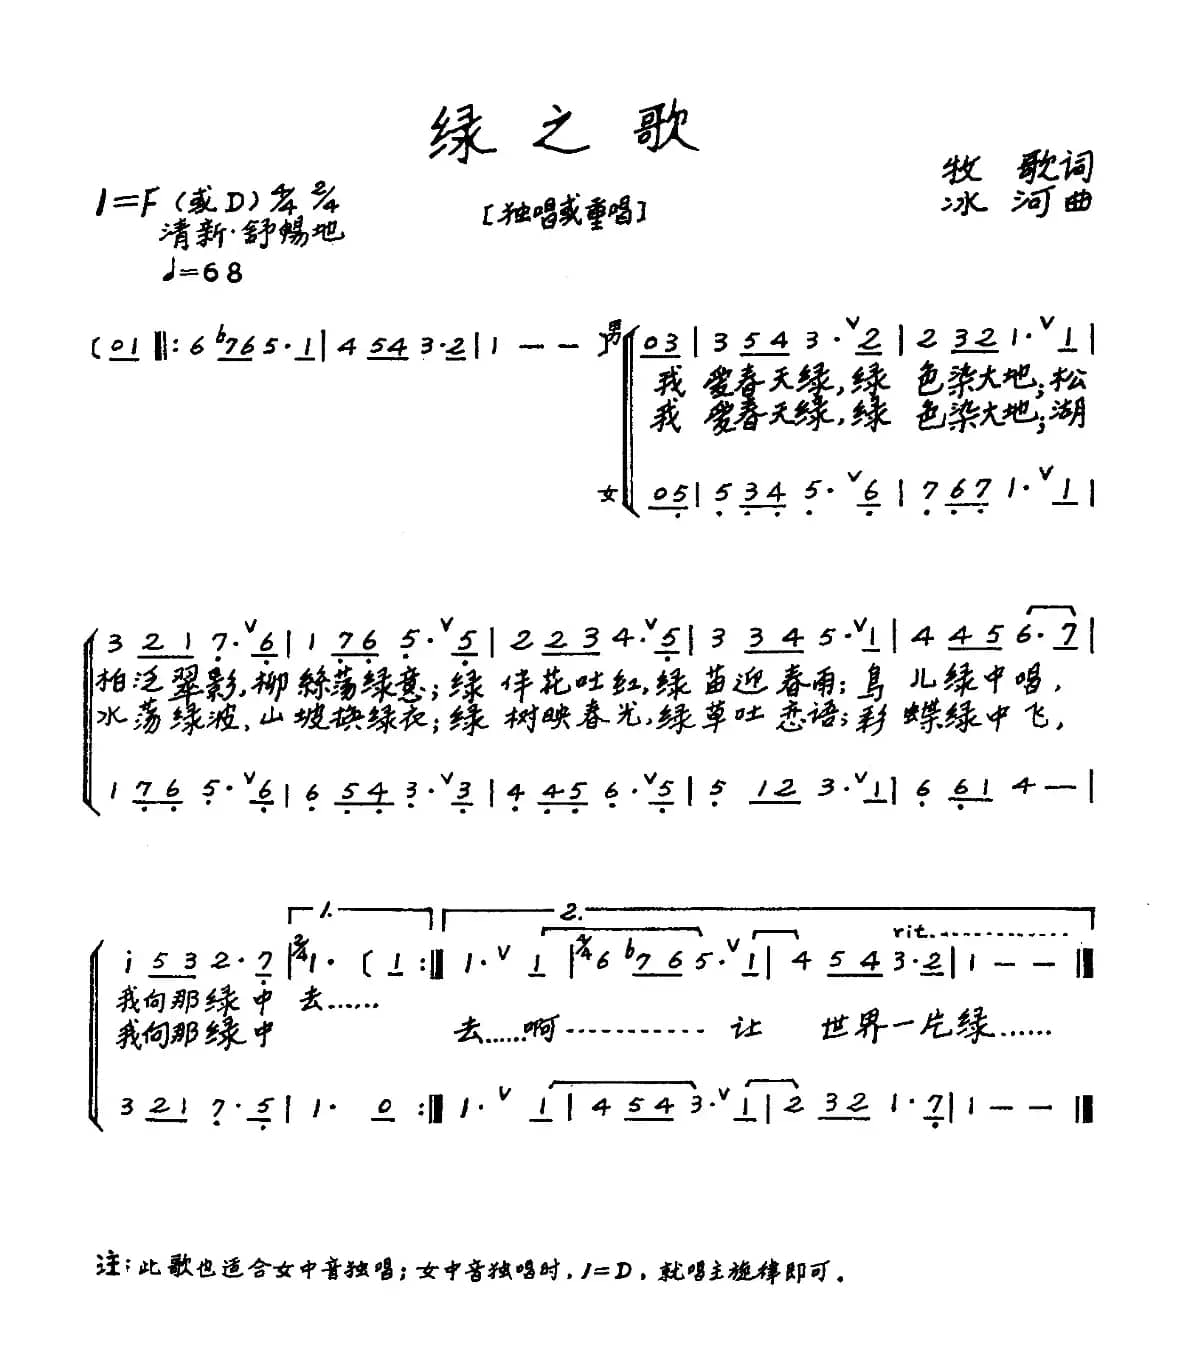 绿之歌
1=F（或D）4/4 2/4
清新·舒畅地
♩=68
［独唱或重唱］
牧 歌词
冰 河曲
( 0 1 ‖: 6 ♭7 6 5· 1 | 4 5 4 3· 2 | 1 — — )
男 0 3 | 3 5 4 3· ∨ 2 | 2 3 2 1· ∨ 1 |
我 爱春天绿，绿 色染大地；松
我 爱春天绿，绿 色染大地；湖
女 0 5̣ | 5̣ 3̣ 4̣ 5̣· ∨ 6̣ | 7̣ 6̣ 7̣ 1· ∨ 1 |
3 2 1 7̣· ∨ 6̣ | 1 7̣ 6̣ 5̣· ∨ 5̣ | 2 2 3 4· ∨ 5̣ | 3 3 4 5· ∨ 1 | 4 4 5 6· 7 |
柏泛翠影，柳丝荡绿意；绿 伴花吐红，绿 苗迎春雨；鸟 儿绿中唱，
水荡绿波，山坡换绿衣；绿 树映春光，绿草吐 恋语；彩 蝶绿中飞，
1 7̣ 6̣ 5̣· ∨ 6̣ | 6̣ 5̣ 4̣ 3̣· ∨ 3̣ | 4̣ 4̣ 5̣ 6̣· ∨ 5̣ | 5̣ 1 2 3· ∨ 1 | 6̣ 6̣ 1 4 — |
1. 2.
rit.
i 5 3 2· 7̣ | 2/4 1· ( 1 :‖ 1· ∨ 1 | 4/4 6 ♭7 6 5· ∨ 1 | 4 5 4 3· 2 | 1 — — ‖
我向那绿中 去……
我向那绿中 去……啊………… 让 世界一片绿……
3 2 1 7̣· 5̣ | 1· 0 :‖ 1· ∨ 1 | 4 5 4 3· ∨ 1 | 2 3 2 1· 7̣ | 1 — — ‖
注：此歌也适合女中音独唱；女中音独唱时，1=D，就唱主旋律即可。